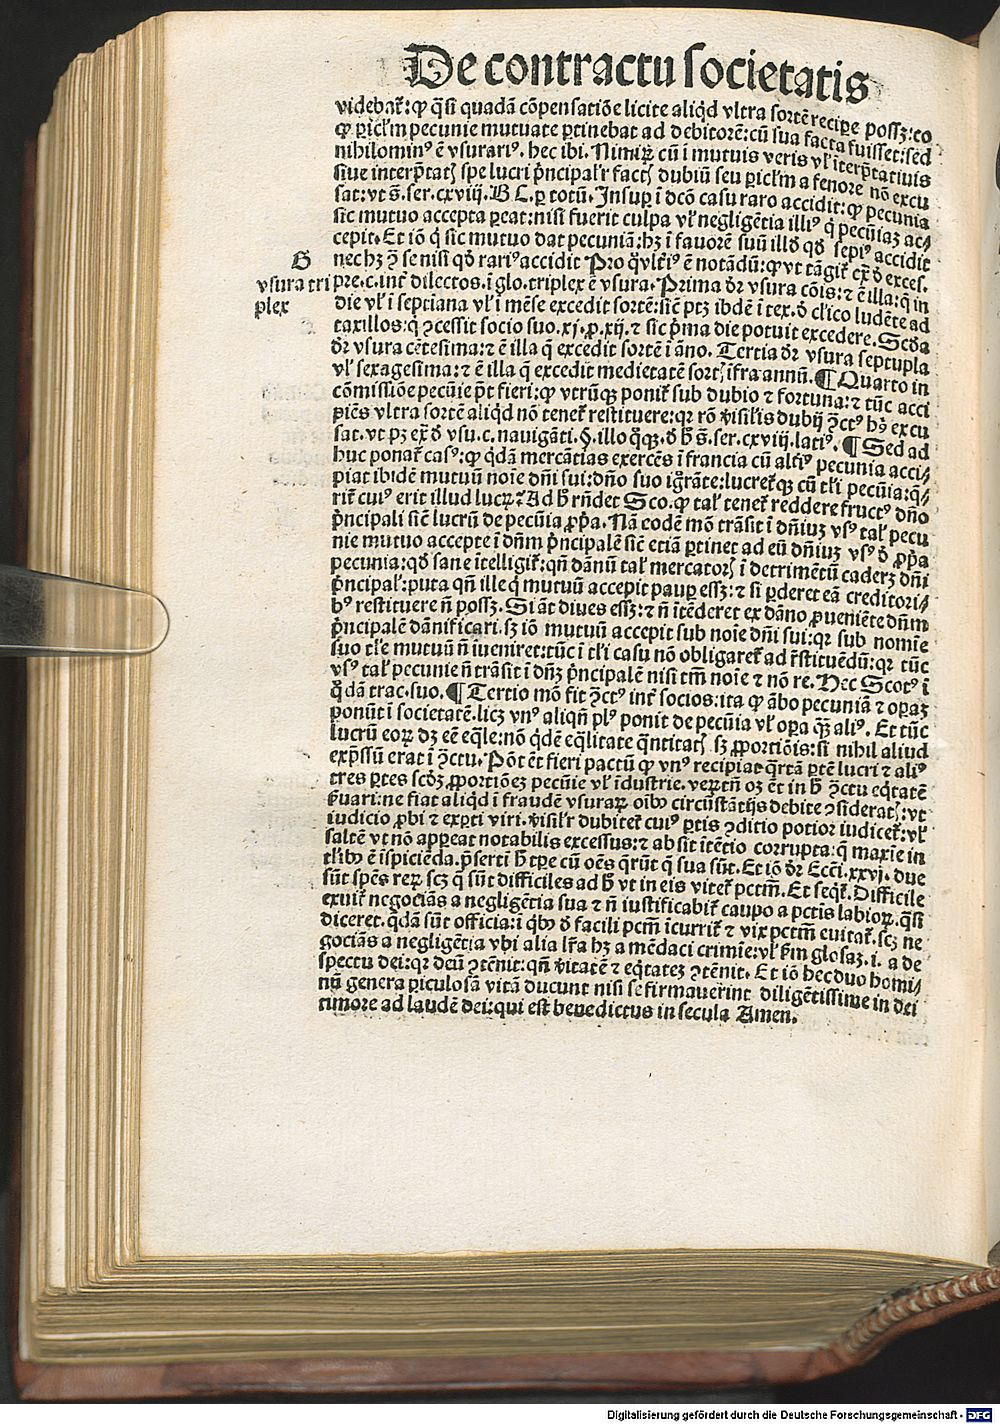 De contractu societatis
videbat᷒: ꝙ q̄si quadā cōpensatiōe licite aliq̇d vltra sortē recipe possꝫ: eo
ꝙ ꝑicl̄m pecunie mutuate ꝑtinebat ad debitorē: cū sua facta fuisset: sed
nihilominꝰ ē vsurariꝰ. hec ibi. Nimiꝝ cū ī mutuis veris vl̓ īterp̄tatiuis
siue interp̄tatꝭ spe lucri p̄ncipalr̓ factꝭ dubiū seu ꝑicl̄m a fenore nō excu
sat: vt s̄. ser. cxviij. B C. ꝑ totū. Insuꝑ ī dc̄o casu raro accidit: ꝙ pecunia
sic mutuo accepta ꝑeat: nisi fuerit culpa vl̓ negligētia illiꝰ q̇ pecūiaꝫ ac⸗
cepit. Et iō q̇ sic mutuo dat pecuniā: hꝫ ī fauorē suū illd̓ qd̓ sepiꝰ accidit
nec hꝫ ꝯ̄ se nisi qd̓ rariꝰ accidit Pro q̇ vlt̓iꝰ ē notādū: ꝙ vt tāgit᷒ ex̄ d̓ exces.
G
vsura tri
plex
pre. c. int̓ dilectos. ī glo. triplex ē vsura. Prima dr̄ vsura cōis: ⁊ ē illa: q̄ in
die vl̓ ī septiana vl̓ ī mēse excedit sortē: sic̄ ptꝫ ibdē ī tex. d̓ cl̓ico ludēte ad
taxillos: q̇ ꝯcessit socio suo. xj. ꝓ. xij. ⁊ sic p̄ma die potuit excedere. Scd̓a
dr̄ vsura cētesima: ⁊ ē illa q̄ excedit sortē ī āno. Tertia dr̄ vsura septupla
vl̓ sexagesima: ⁊ ē illa q̄ excedit medietatē sortꝭ īfra annū. ¶ Quarto in
cōmissiōe pecūie pōt fieri: ꝙ vtrūqꝫ ponit᷒ sub dubio ⁊ fortuna: ⁊ tūc acci
piēs vltra sortē aliq̇d nō tenet᷒ restituere: qꝛ rō v̓isilis dubij ꝯ̄ctꝰ hꝰ excu
sat. vt pꝫ ex̄ d̓ vsu. c. nauigāti. §. illo q̊qꝫ. d̓ h̓ s̄. ser. cxviij. latiꝰ. ¶ Sed ad
huc ponat᷒ casꝰ: ꝙ q̇dā mercātias exercēs ī francia cū alt̓iꝰ pecunia acci⸗
piat ibidē mutuū noīe dn̄i sui: dn̄o suo igr̄ate: lucret᷒qꝫ cū tl̓i pecūia: q̄⸗
rit᷒ cuiꝰ erit illud lucꝝ? Ad h̓ rn̄det Sco. ꝙ tal̓ tenet᷒ reddere fructꝰ dn̄o
p̄ncipali sic̄ lucrū de pecūia ꝓp̓a. Nā eodē mō trāsit ī dn̄iuꝫ vsꝰ tal̓ pecu
nie mutuo accepte ī dn̄m p̄ncipalē sic̄ etiā ꝑtinet ad eū dn̄iuꝫ vsꝰ d̓ ꝓp̓a
pecunia: qd̓ sane ītelligit᷒: qn̄ dānū tal̓ mercatorꝭ ī detrimētū caderꝫ dn̄i
p̄ncipal̓: puta qn̄ ille q̇ mutuū accepit pauꝑ essꝫ: ⁊ si ꝑderet eā creditori⸗
bꝰ restituere n̄ possꝫ. Si āt diues essꝫ: ⁊ n̄ ītēderet ex dāno ꝓueniēte dn̄m
p̄ncipalē dānificari. sꝫ iō mutuū accepit sub noīe dn̄i sui: qꝛ sub nomīe
suo tl̓e mutuū n̄ īueniret: tūc ī tl̓i casu nō obligaret᷒ ad r̄stituēdū: qꝛ tūc
vsꝰ tal̓ pecunie n̄ trāsit ī dn̄ꝫ p̄ncipalē nisi tm̄ noīe ⁊ nō re. Hec Scotꝰ ī
q̊dā trac. suo. ¶ Tertio mō fit ꝯ̄ctꝰ int̓ socios: ita ꝙ ābo pecuniā ⁊ oꝑaꝫ
ponūt ī societatē. licꝫ vnꝰ aliqn̄ plꝰ ponit de pecūia vl̓ oꝑa q̄ꝫ aliꝰ. Et tūc
lucrū eoꝝ dꝫ eē eq̄le: nō q̇dē eq̄litate q̄ntitatꝭ sꝫ ꝓportiōis: si nihil aliud
exp̄ssū erat ī ꝯ̄ctu. Pōt ēt fieri pactū ꝙ vnꝰ recipiat q̄rtā ꝑtē lucri ⁊ aliꝰ
tres ꝑtes scd̓ꝫ ꝓportiōeꝫ pecūie vl̓ īdustrie. veꝝtn̄ oꝫ ēt in h̓ ꝯ̄ctu eq̇tatē
s̓uari: ne fiat aliq̇d ī fraudē vsuraꝝ oībꝫ circūstātijs debite ꝯsideratꝭ: vt
iudicio ꝓbi ⁊ exꝑti viri. v̓isilr̓ dubitet᷒ cuiꝰ ꝑtis ꝯditio potior iudicet᷒: vl̓
saltē vt nō appeat notabilis excessus: ⁊ absit ītētio corrupta: q̄ maxīe in
tl̓ibꝫ ē īspiciēda. p̄sertī h̓ tꝑe cū oēs q̄rūt q̄ sua sūt. Et iō dr̄ Ecci. xxvj. due
sūt spēs reꝝ scꝫ q̄ sūt difficiles ad h̓ vt in eis vitet᷒ pctm̄. Et seqt᷒. Difficile
exuit᷒ negociās a negligētia sua ⁊ n̄ iustificabit᷒ caupo a pctīs labioꝝ. q̄si
diceret. q̇dā sūt officia: ī q̇bꝫ d̓ facili pcm̄ īcurrit᷒ ⁊ vix pctm̄ euitat᷒. scꝫ ne
gociās a negligētia vbi alia lr̄a hꝫ a mēdaci crimīe: vl̓ s̓m glosaꝫ. i. a de
spectu dei: qꝛ deū ꝯtēnit: qn̄ v̓itatē ⁊ eq̇tateꝫ ꝯtēnit. Et iō hec duo homi⸗
nū genera ꝑiculosā vitā ducunt nisi se firmauerint diligētissime in dei
timore ad laudē dei: qui est benedictus in secula Amen.
Digitalisierung gefördert durch die Deutsche Forschungsgemeinschaft - DFG